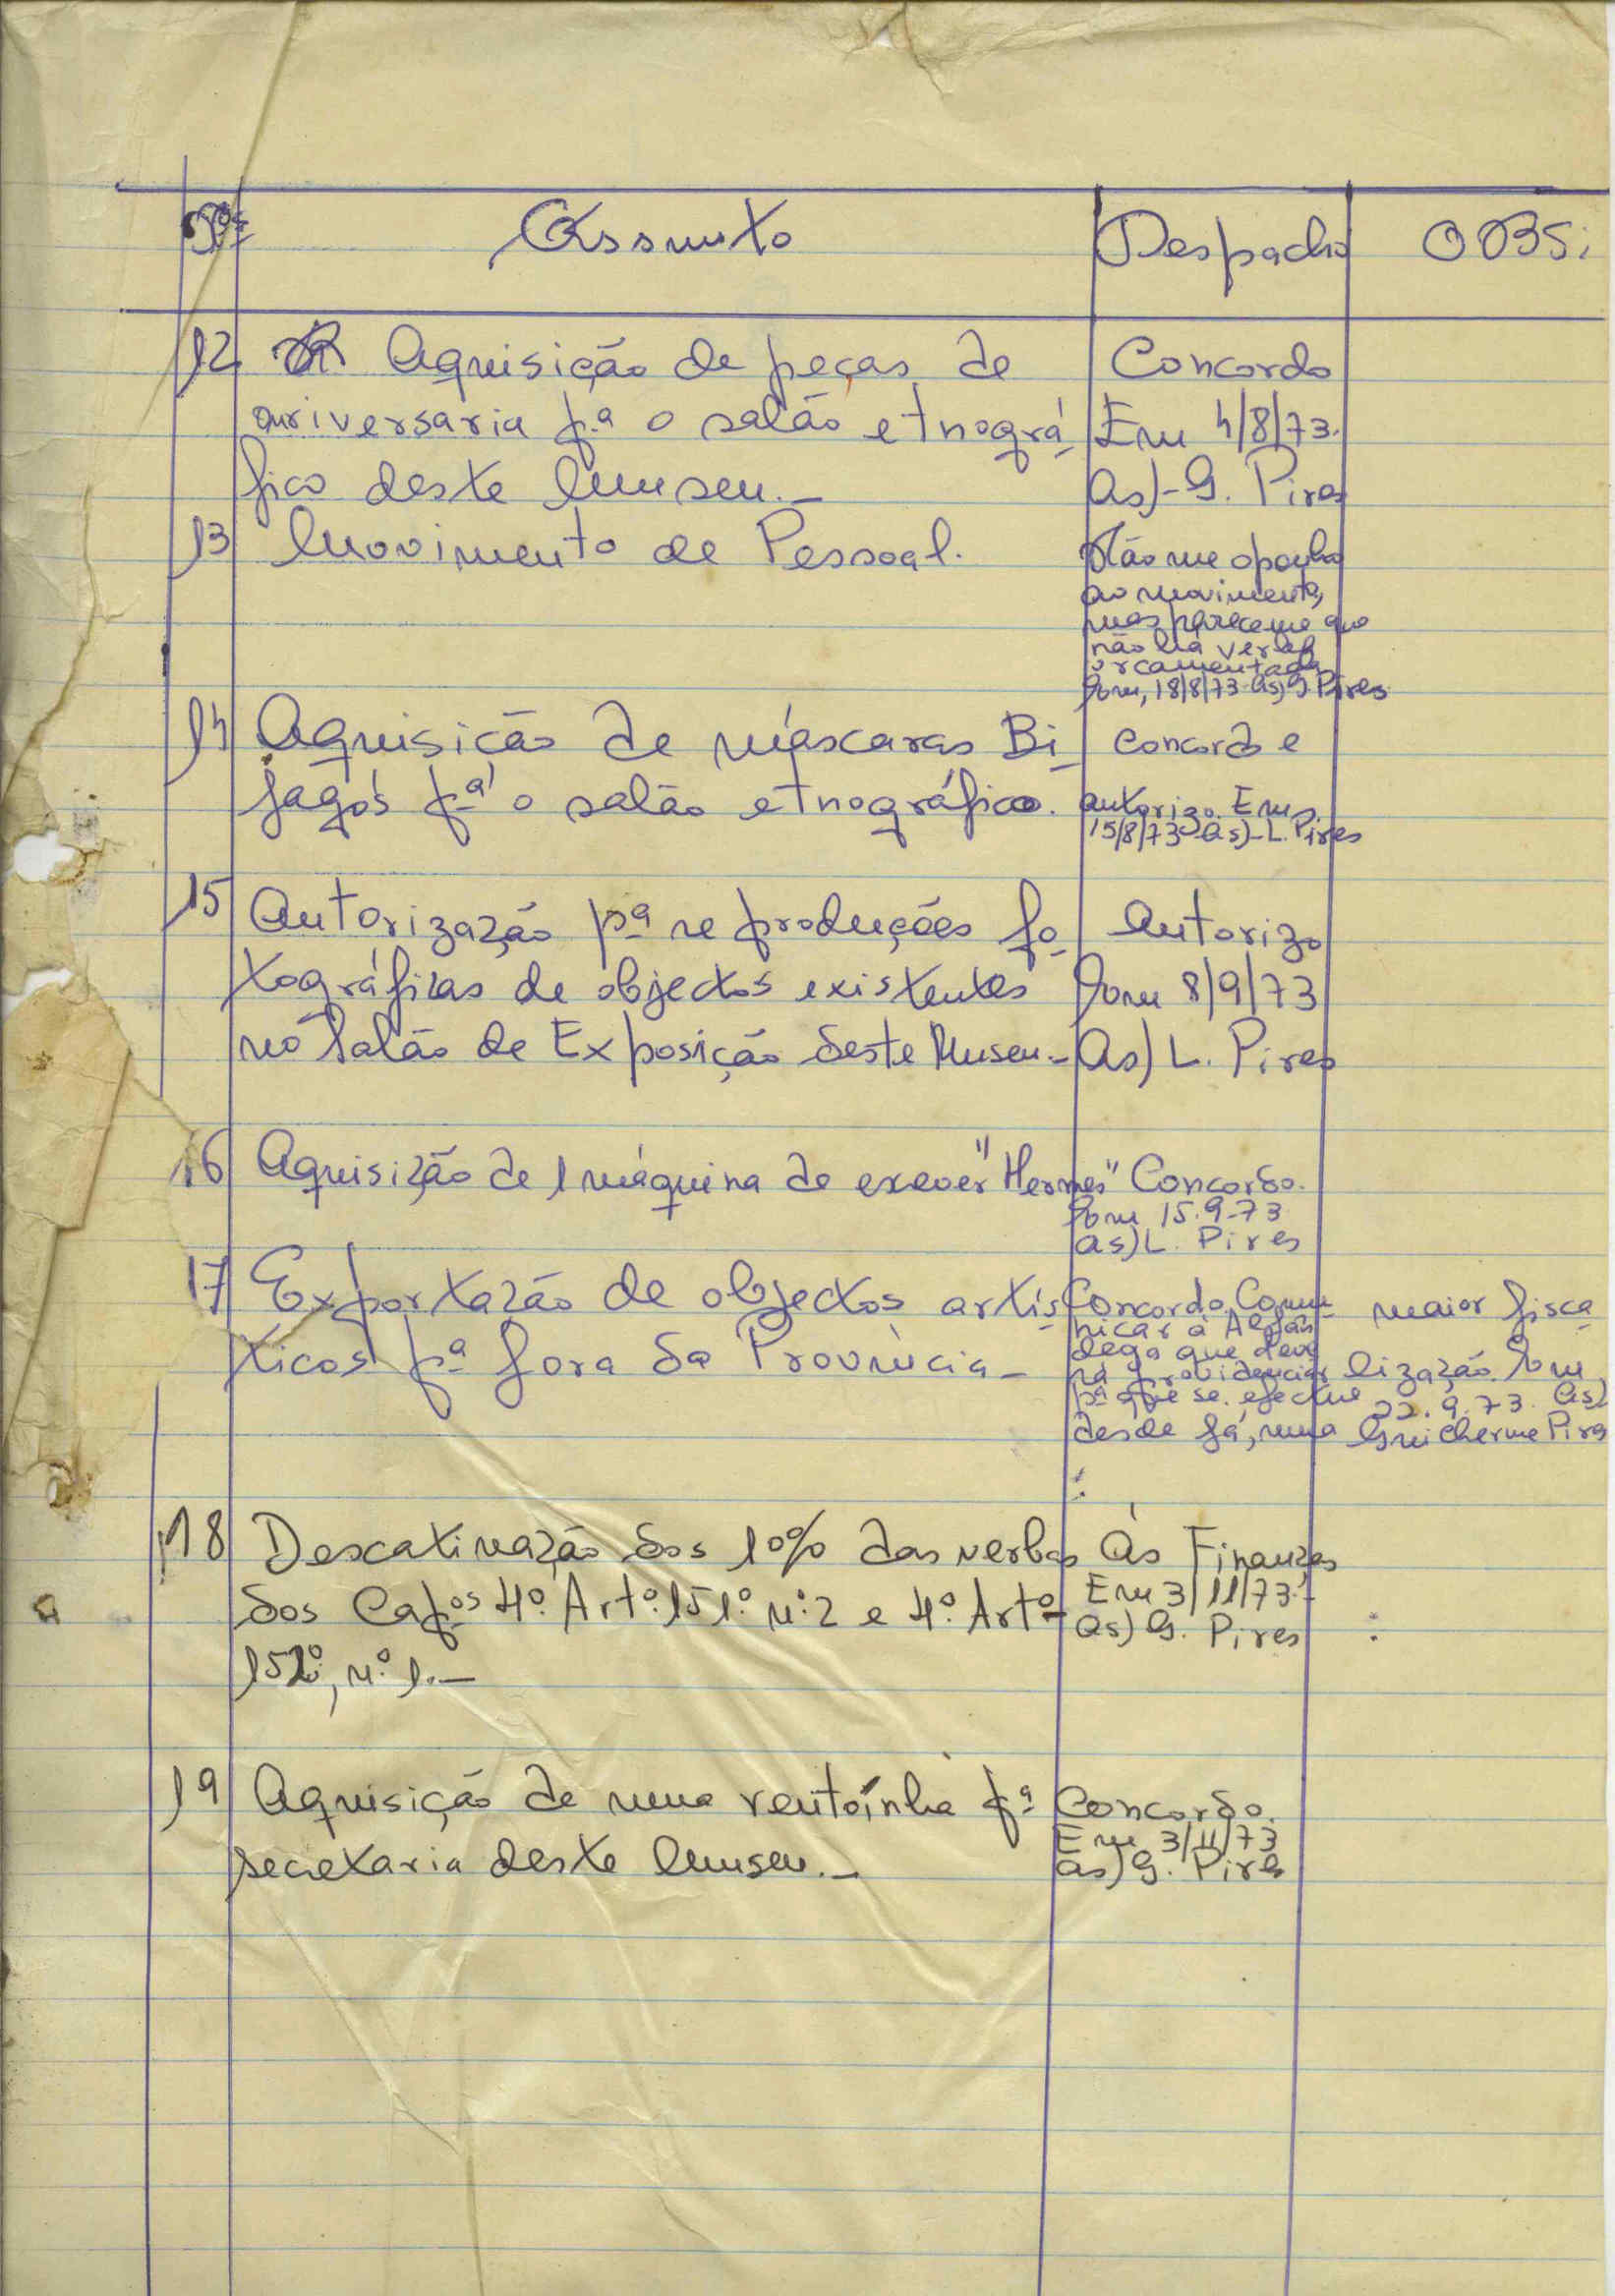 Nºs Assunto Despacho OBS:
12 Aquisição de peças de Concordo
ouriversaria pª o salão etnográ- Em 4/8/73.
fico deste Museu.- As)-G. Pires
13 Movimento de Pessoal. Não me oponho
ao movimento,
mas parece-me que
não há verba
orcamentada
Em, 18/8/73-As) G Pires
14 Aquisição de máscaras Bi- Concordo e
jagós pª o salão etnográfico. autorizo. Em
15/8/73-As)-L. Pires
15 Autorização pª reproduções fo- Autorizo
tográficas de objectos existentes Em 8/9/73
no Salão de Exposição deste Museu.- As) L. Pires
16 Aquisição de 1 máquina de escrever "Hermes" Concordo.
Em 15.9.73
as) L. Pires
17 Exportação de objectos artís- Concordo. Comu- maior fisca
nicar à Alfân
ticos pª fora da Província - dega que deve
rá providenciar lização. Em
pª que se. efectue 22.9.73. As)
desde já, uma Guilherme Pires
18 Descativação dos 10% das verbas Às Finanças
dos Capºs 4º. Artº. 151º. nº. 2 e 4º. Artº- Em 3/11/73.-
As) G. Pires
152º, nº. 1.-
19 Aquisição de uma ventoínha pª Concordo.
Em 3/11/73
secretaria deste Museu.- as) G. Pires